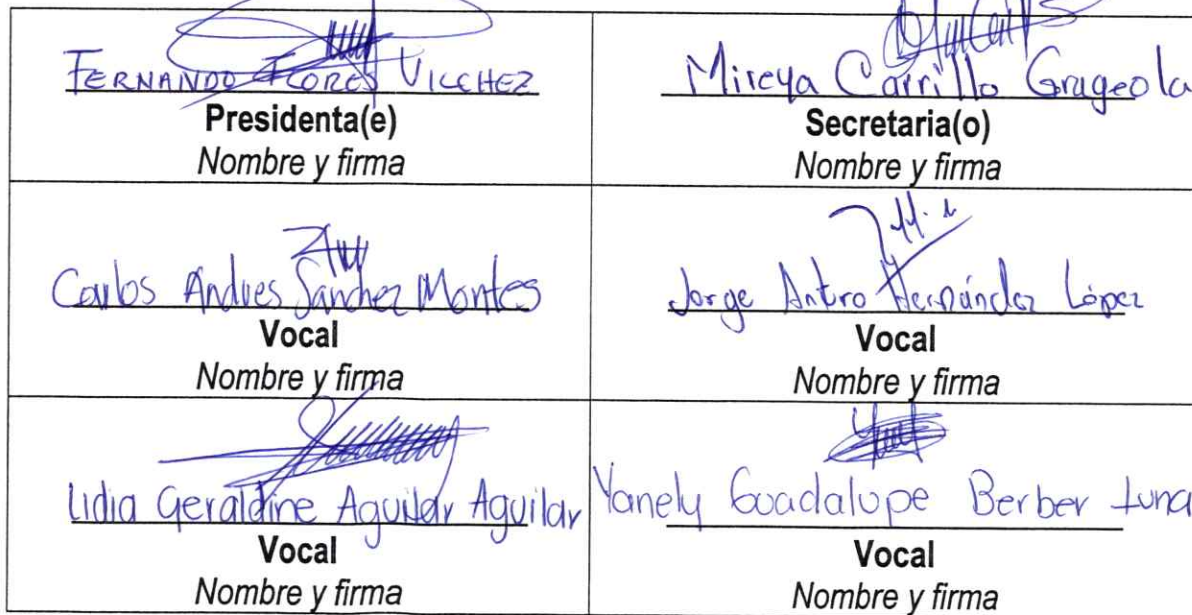 FERNANDO FLORES VILCHEZ
Presidenta(e)
Nombre y firma
Mireya Carrillo Grageola
Secretaria(o)
Nombre y firma
Carlos Andres Sanchez Montes
Vocal
Nombre y firma
Jorge Arturo Hernández López
Vocal
Nombre y firma
Lidia Geraldine Aguilar Aguilar
Vocal
Nombre y firma
Yanely Guadalupe Berber Luna
Vocal
Nombre y firma